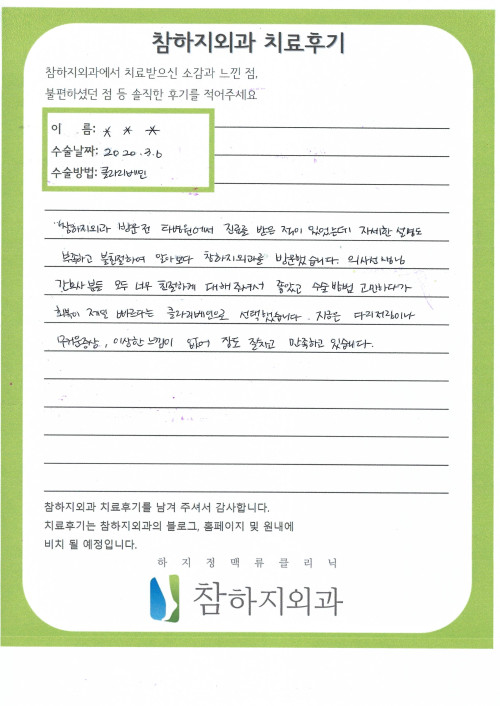 참하지외과 치료후기
참하지외과에서 치료받으신 소감과 느낀 점,
불편하셨던 점 등 솔직한 후기를 적어주세요
이 름: * * *
수술날짜: 2020.3.6
수술방법: 클라리베인
참하지외과 방문 전 타병원에서 진료를 받은 적이 있었는데 자세한 설명도
부족하고 불친절하여 알아보다 참하지외과를 방문했습니다. 의사선생님
간호사분들 모두 너무 친절하게 대해주셔서 좋았고 수술방법 고민하다가
회복이 제일 빠르다는 클라리베인으로 선택했습니다. 지금은 다리저림이나
무거운증상, 이상한 느낌이 없어 잠도 잘자고 만족하고 있습니다.
참하지외과 치료후기를 남겨 주셔서 감사합니다.
치료후기는 참하지외과의 블로그, 홈페이지 및 원내에
비치 될 예정입니다.
하지정맥류클리닉
참하지외과